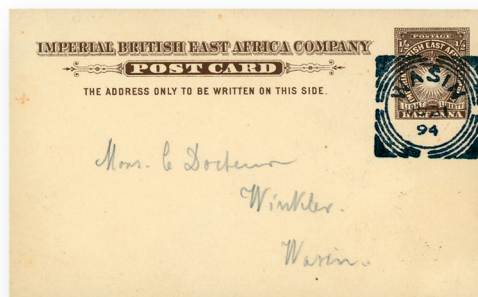 IMPERIAL BRITISH EAST AFRICA COMPANY
POST CARD
THE ADDRESS ONLY TO BE WRITTEN ON THIS SIDE.
POSTAGE
½
½
LIGHT LIBERTY
WASIN
94
Mons. C Docteur
Winkler.
Wasin.